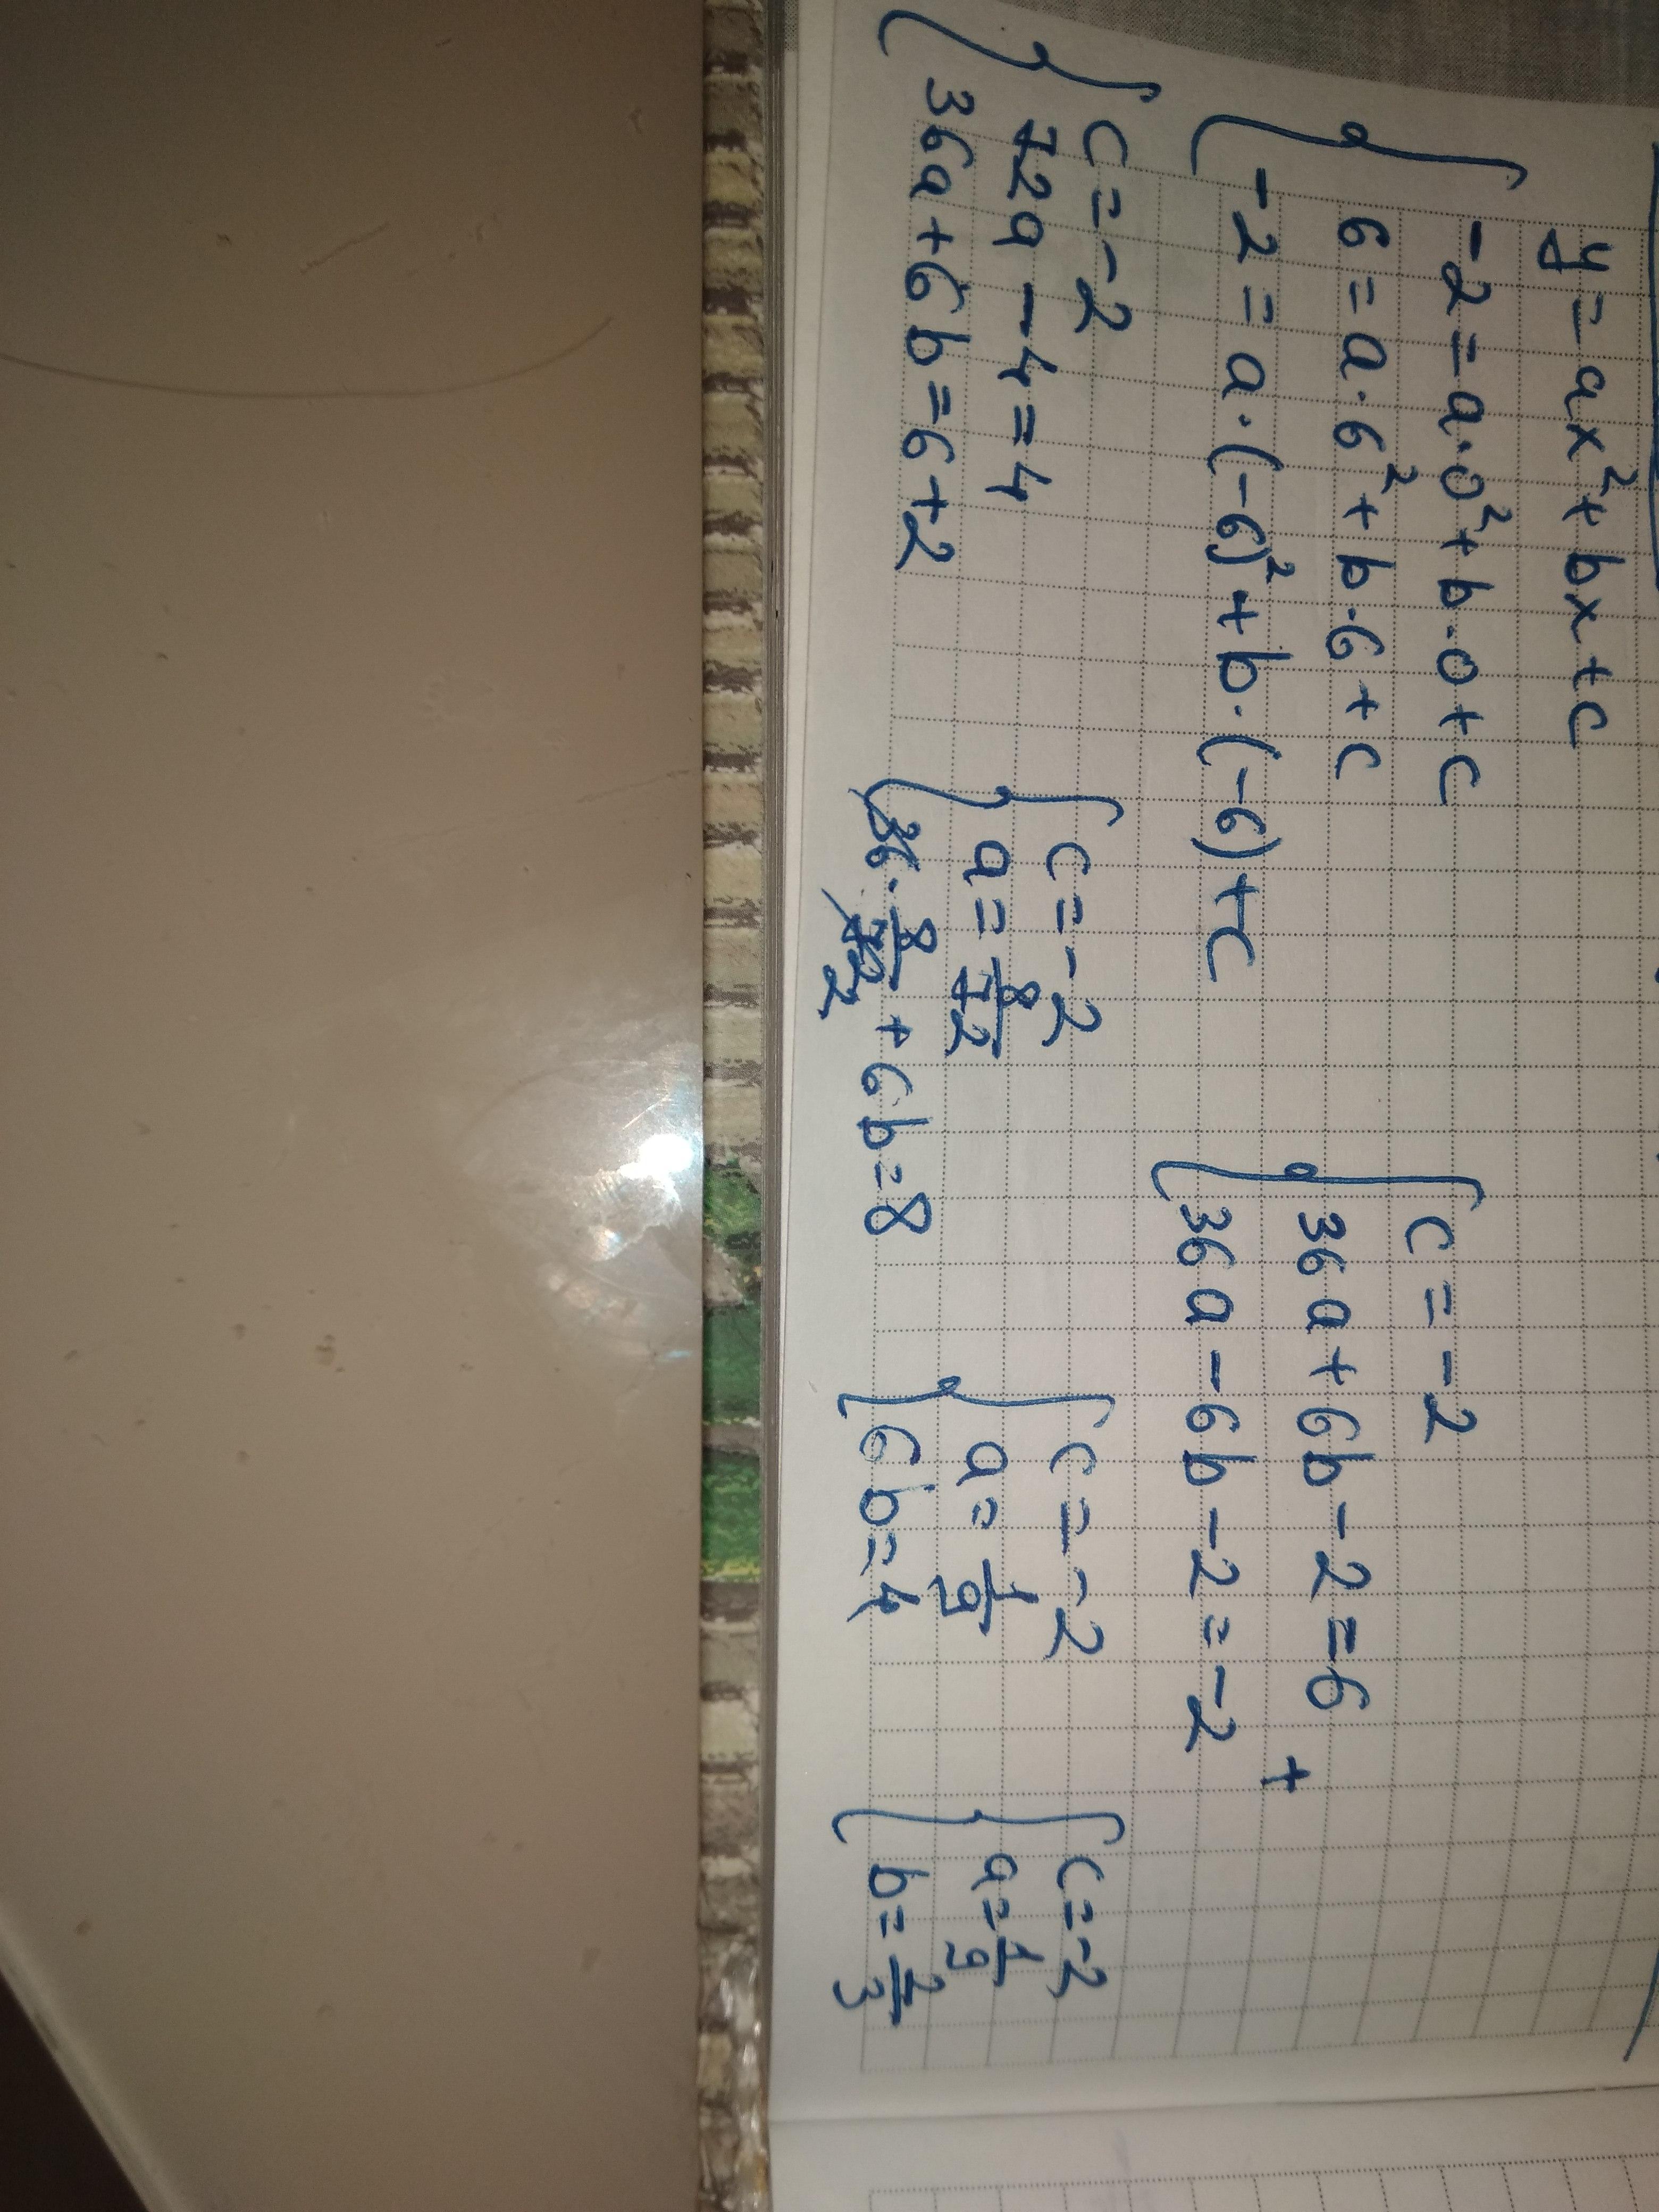 y = ax² + bx + c
{ -2 = a·0² + b·0 + c
6 = a·6² + b·6 + c
-2 = a·(-6)² + b·(-6) + c
{ c = -2
36a + 6b - 2 = 6
36a - 6b - 2 = -2 +
{ c = -2
72a - 4 = 4
36a + 6b = 6 + 2
{ c = -2
a = 8/72
36 · 8/72 2 + 6b = 8
{ c = -2
a = 1/9
6b = 4
{ c = -2
a = 1/9
b = 2/3